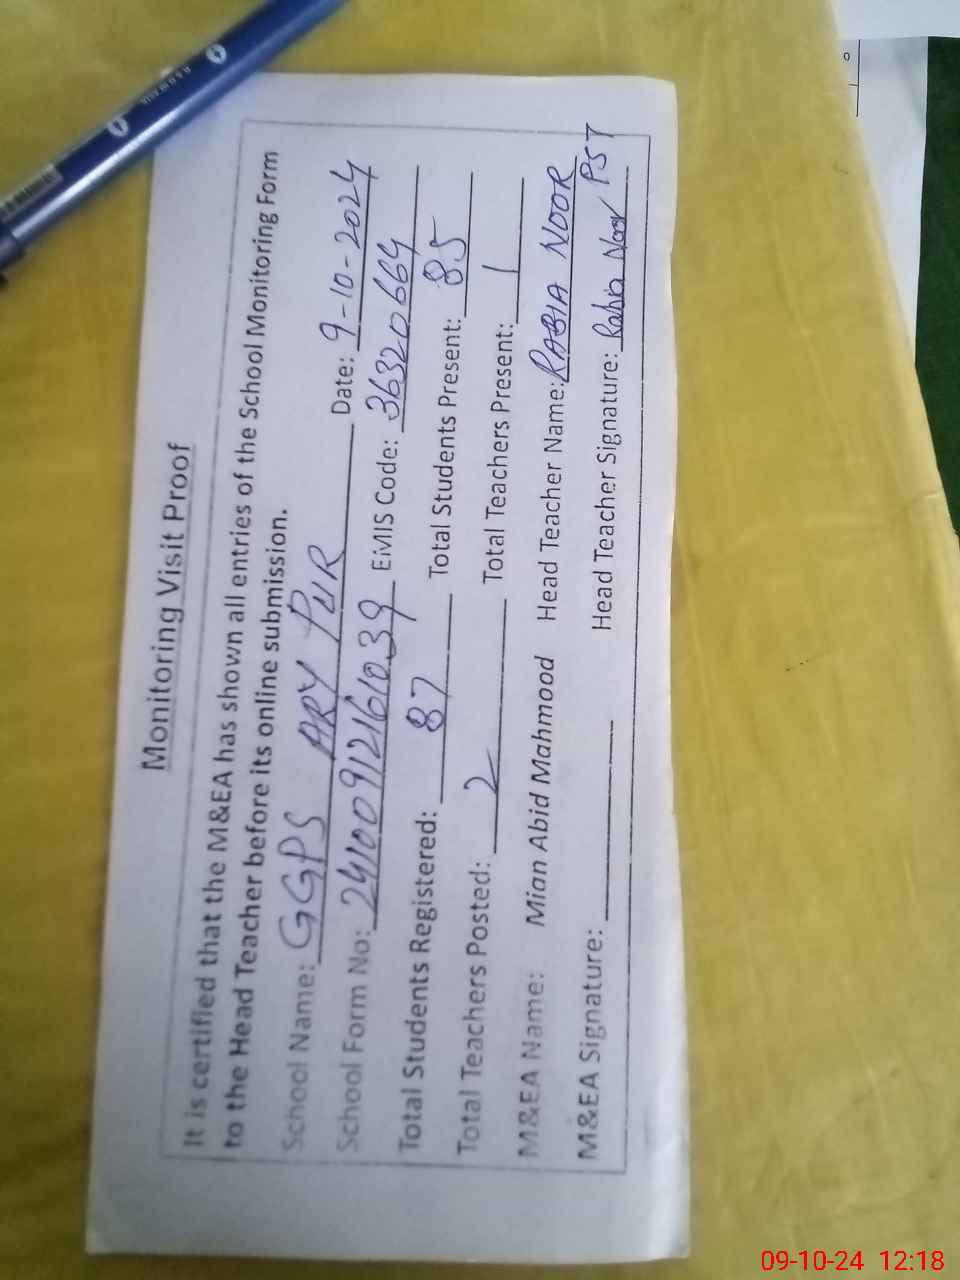 Monitoring Visit Proof
It is certified that the M&EA has shown all entries of the School Monitoring Form
to the Head Teacher before its online submission.
School Name: GGPS ARY PUR Date: 9-10-2024
School Form No: 24100912161039 EMIS Code: 36320664
Total Students Registered: 87 Total Students Present: 85
Total Teachers Posted: 2 Total Teachers Present: 1
M&EA Name: Mian Abid Mahmood Head Teacher Name: RABIA NOOR
M&EA Signature: Head Teacher Signature: Rabia Noor PST
09-10-24 12:18